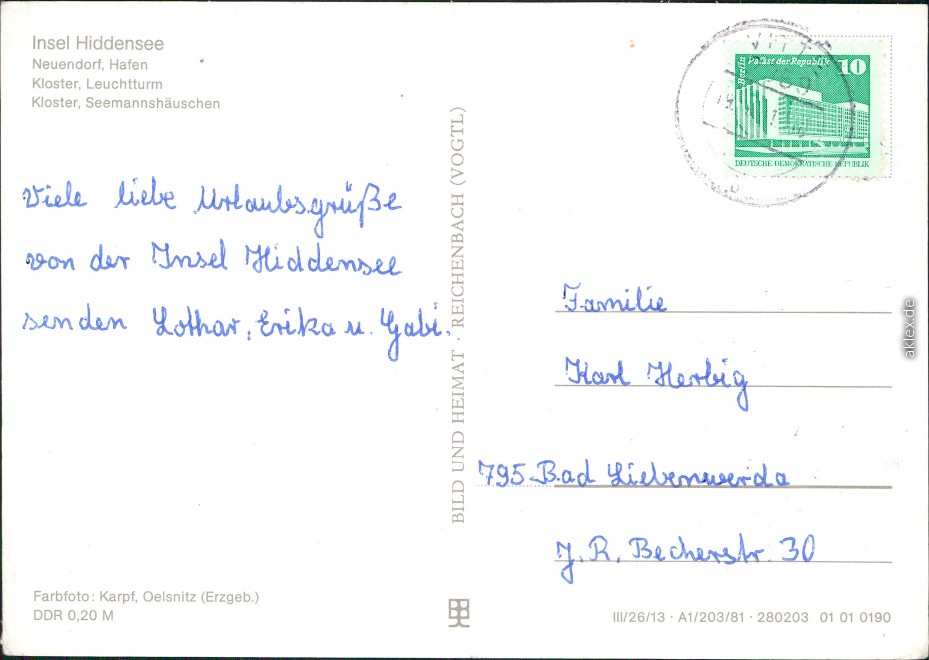 Insel Hiddensee
Neuendorf, Hafen
Kloster, Leuchtturm
Kloster, Seemannshäuschen
Viele liebe Urlaubsgrüße
von der Insel Hiddensee
senden Lothar, Erika u. Gabi.
Farbfoto: Karpf, Oelsnitz (Erzgeb.)
DDR 0,20 M
BILD UND HEIMAT · REICHENBACH (VOGTL)
Berlin Palast der Republik 10
DEUTSCHE DEMOKRATISCHE REPUBLIK
Familie
Karl Herbig
795 Bad Liebenwerda
J. R. Becherstr. 30
III/26/13 · A1/203/81 · 280203 01 01 0190
aklex.de